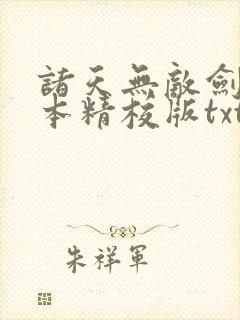 諸天無敵劍
本精校版txt
朱祥軍